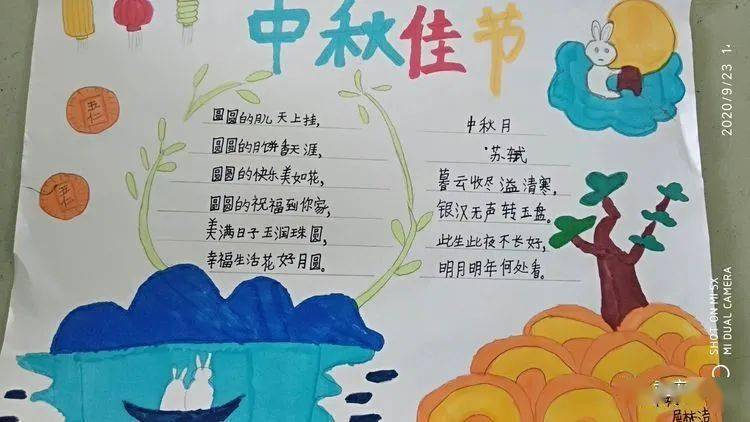 中秋佳节
五仁
五仁
圆圆的月儿天上挂,
圆圆的月饼香天涯,
圆圆的快乐美如花,
圆圆的祝福到你家,
美满日子玉润珠圆,
幸福生活花好月圆。
中秋月
苏轼
暮云收尽溢清寒,
银汉无声转玉盘。
此生此夜不长好,
明月明年何处看。
2020/9/23 1
SHOT ON MI 5X
MI DUAL CAMERA